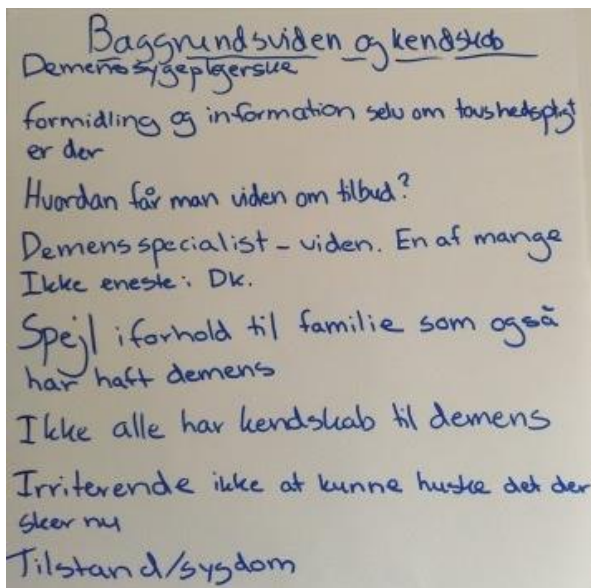 Baggrundsviden og kendskab
Demenssygeplejerske
formidling og information selv om tavshedspligt
er der
Hvordan får man viden om tilbud?
Demensspecialist - viden. En af mange
Ikke eneste i Dk.
Spejl iforhold til familie som også
har haft demens
Ikke alle har kendskab til demens
Irriterende ikke at kunne huske det der
sker nu
Tilstand/sygdom